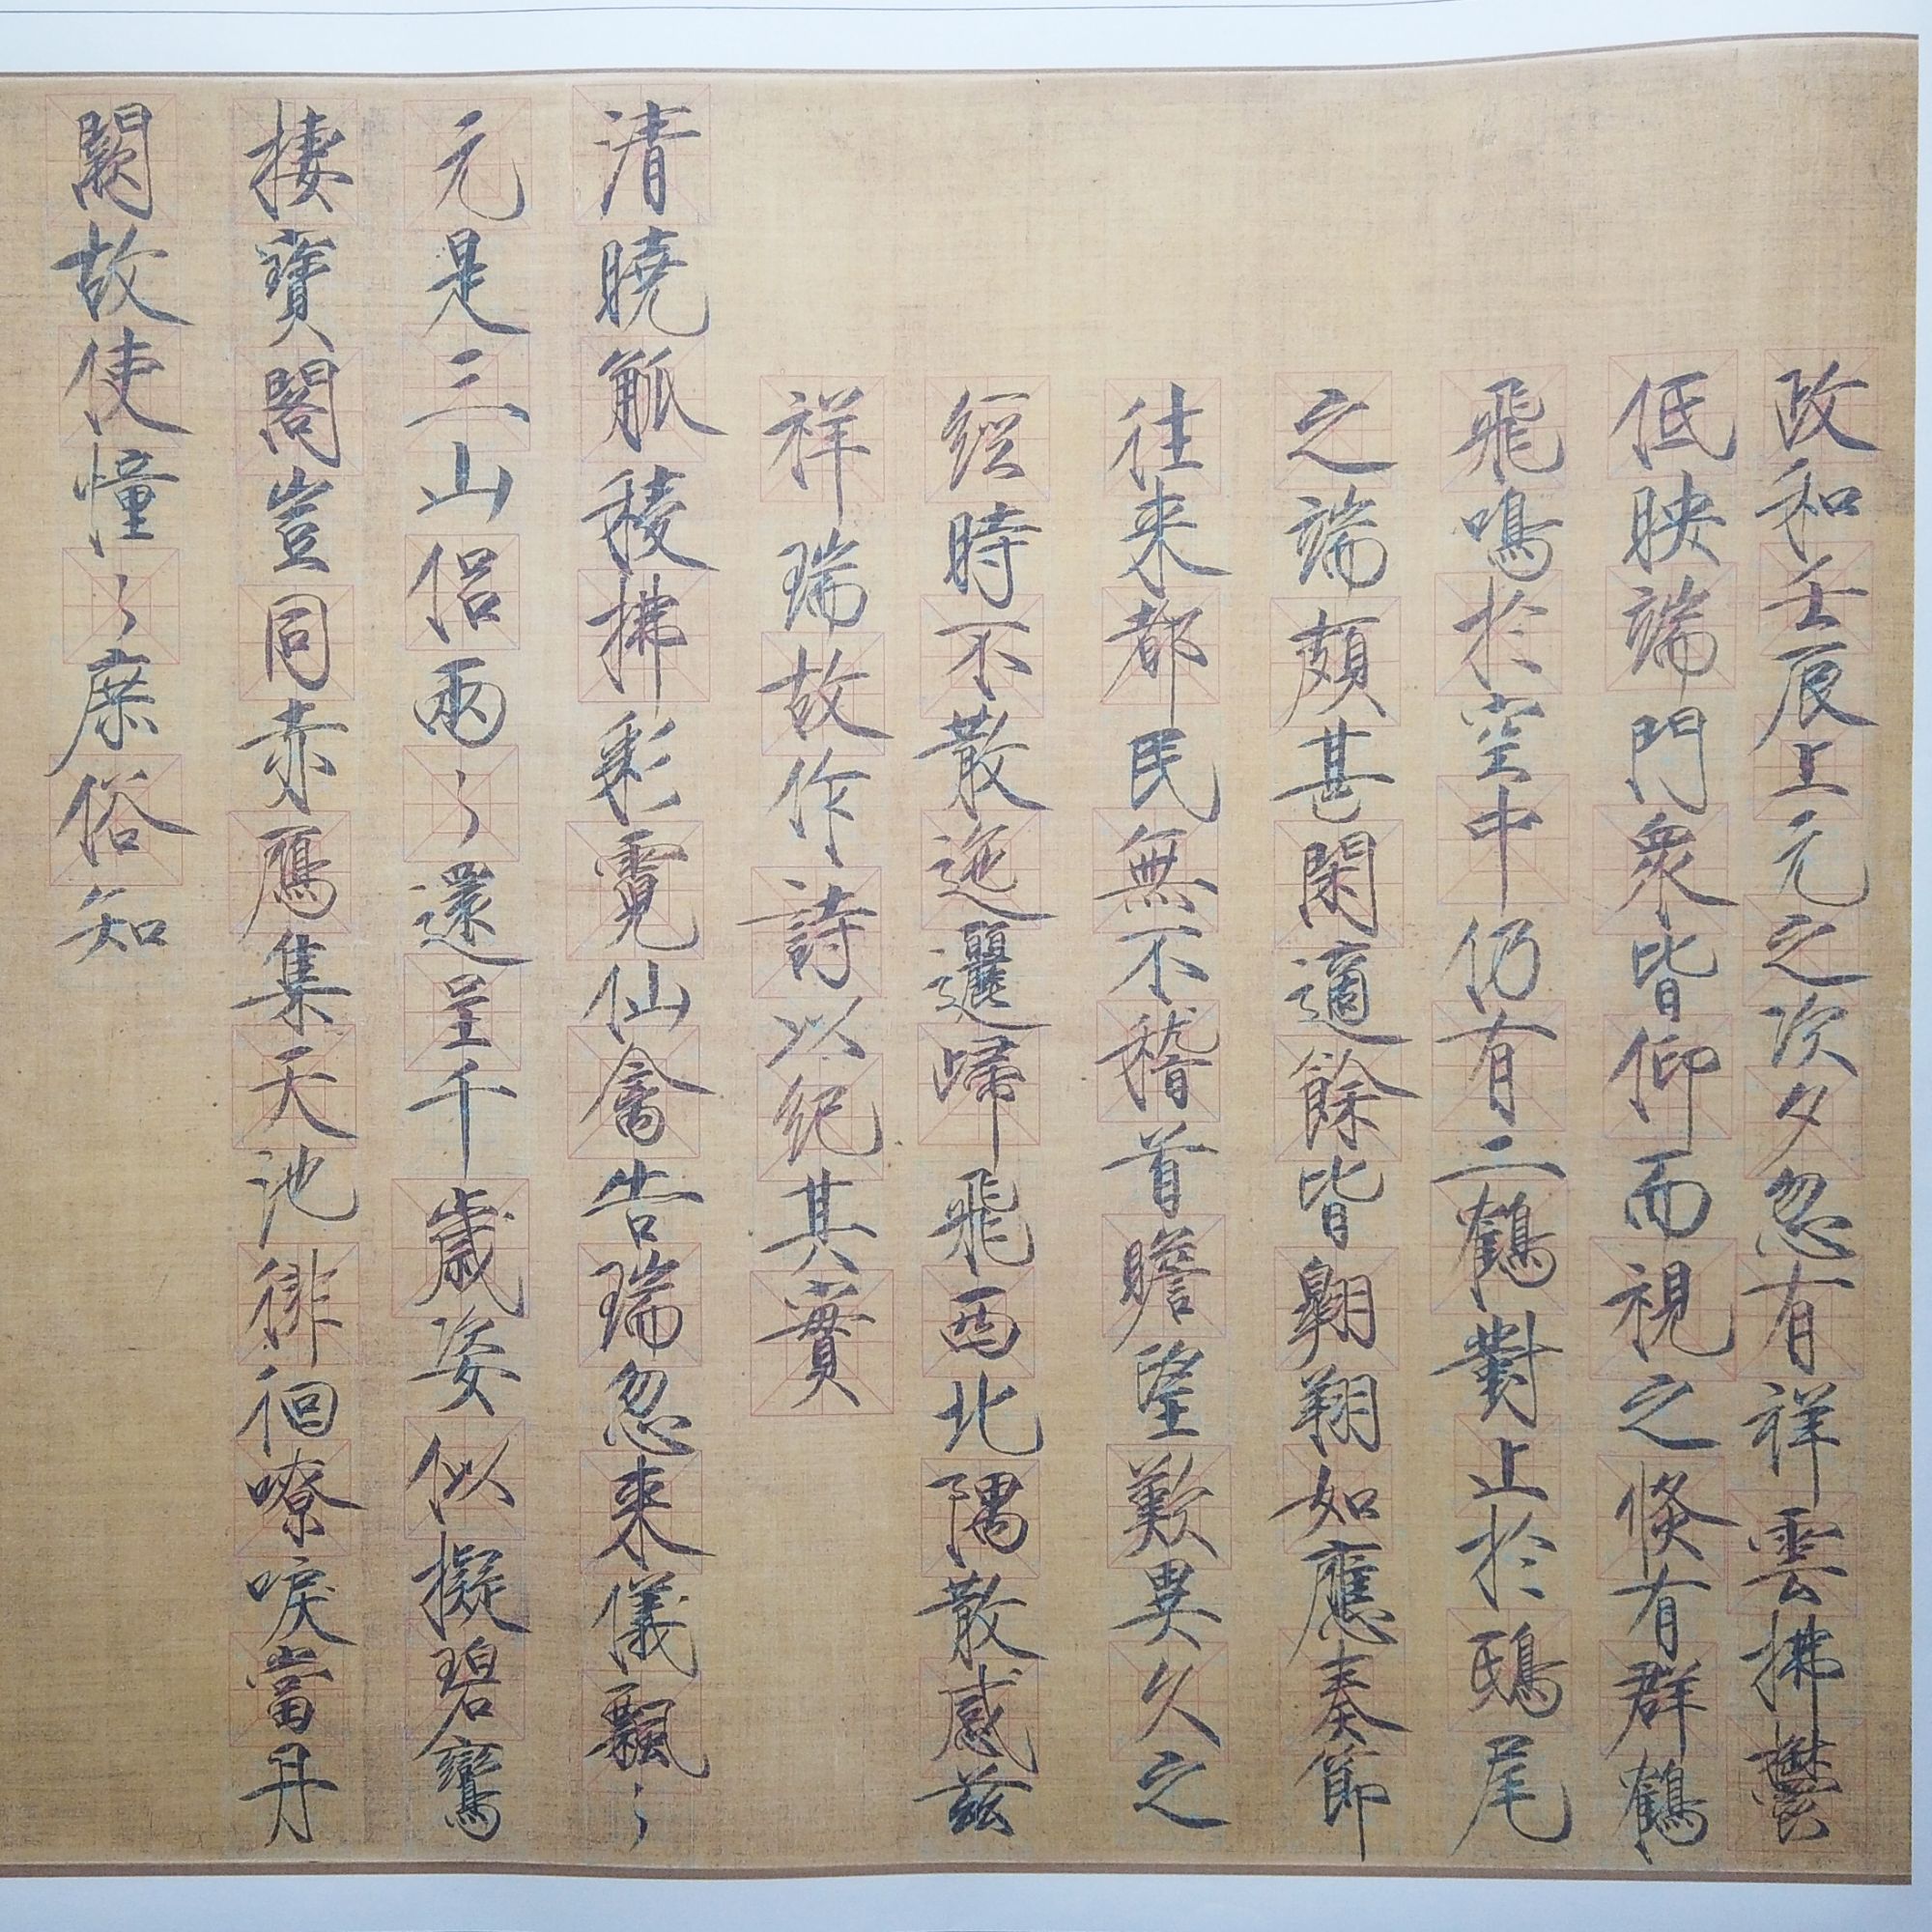 政和壬辰上元之次夕忽有祥雲拂鬱
低映端門衆皆仰而視之倏有群鶴
飛鳴於空中仍有二鶴對止於鴟尾
之端頗甚閑適餘皆翱翔如應奏節
往來都民無不稽首瞻望歎異久之
經時不散迤邐歸飛西北隅散感兹
祥瑞故作詩以紀其實
清曉觚稜拂彩霓仙禽告瑞忽來儀飄〻
元是三山侣兩〻還呈千歲姿似擬碧鸞
棲寶閣豈同赤鴈集天池徘徊嘹唳當丹
闕故使憧〻庶俗知